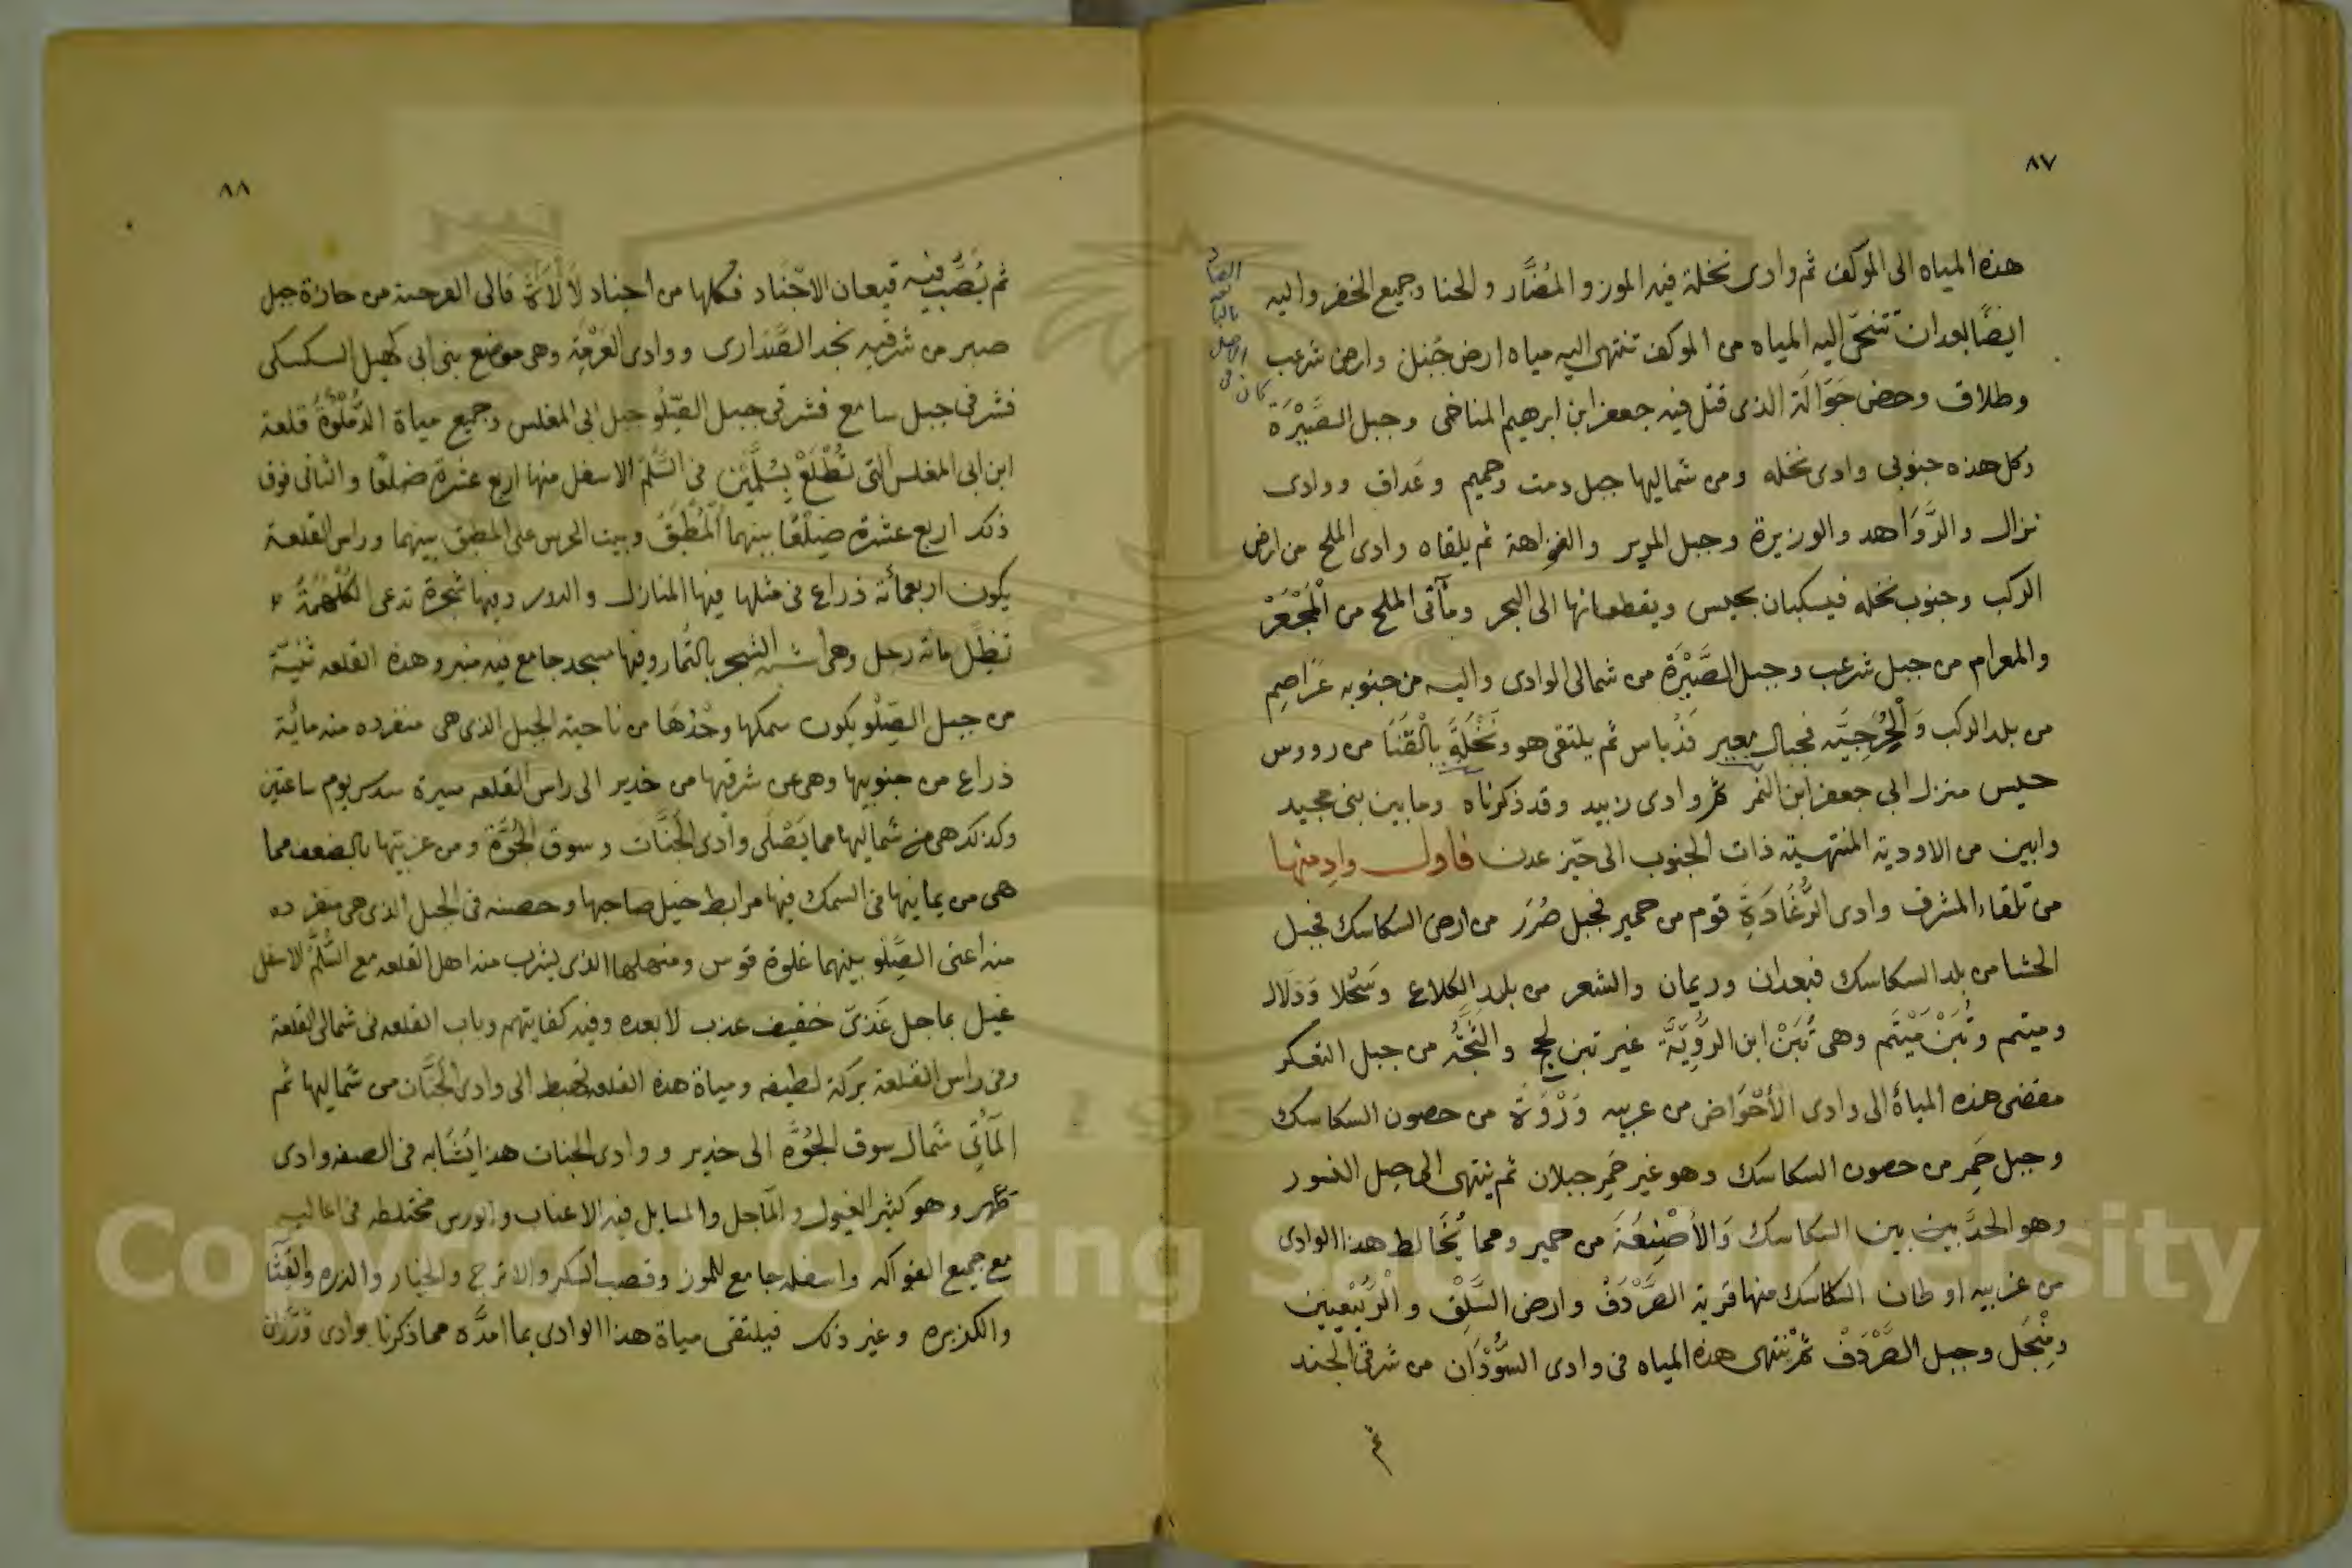 ٨٧
هذه المياه الى الموكف ثم وادى نخلة فيه الموز والمُضَّار والحنا وجميع الخضر واليه
ايضًا بعدان تتنحّى اليه المياه من الموكف تنتهى اليه مياه ارض جُبْل وارض شرعب
وطلاق وحض جَوَالَة الذى قتل فيه جعفر ابن ابرهيم المناخى وجبل الصَّيْرَة
وكل هذه جنوبى وادى نخله ومن شماليها جبل دمت وحميم وعَداف ووادى
نزال والرَّوَاهد والوزيرة وجبل المرير والفراهة ثم يلقاه وادى الملح من ارض
الركب وجنوب نخله فيسكبان بحيس ويقطعانها الى البحر ومأتى الملح من الْمَجْعَرْ
والمعرام من جبل شرعب وجبل الصَّيْرَة من شمالى الوادى واليه من جنوبه عَرَاصِم
من بلد الركب وَالْحُرَجِيَّه فجبال بعير فذباس ثم يلتقى هو ونَخْلَة بالْقَنَا من رووس
حيس منزل ابى جعفر ابن النمر ثم وادى زبيد وقد ذكرناه وما بين بنى مجيد
وابين من الاودية المنتهية ذات الجنوب الى حيّز عدن فاول وادٍ منها
من تلقاء المشرق وادى الرُّغَادَةِ قوم من حمير فجبل صُرَر من ارض السكاسك فجبل
الحشا من بلد السكاسك فبعدان وريمان والشعر من بلد الكلاع وسَحْلا وَدَلال
وميتم وتُبَنْ مَيْتَم وهى تُبَنْ ابن الرَّوِيَّة غير تبن لحج والثُّجَّه من جبل التعكر
مفضى هذه المياة الى وادى الأحْوَاض من غربيه وَرْوَة من حصون السكاسك
وجبل حَمِر من حصون السكاسك وهو غير حَمِر جبلان ثم ينتهى الى جبل النسور
وهو الحدَّ بين بين السكاسك وَالأصْنِعَةَ من حمير ومما يُخَالط هذا الوادى
من غربيه اوطان السكاسك منها قرية الصَّرْدَفْ وارض السَّلِفْ والرَّبِيْعِيين
ومِنْجَل وجبل الصَّرْدَفْ ثم تنتهى هذه المياه فى وادى السُّوْدَان من شرقى الجند
ثم
٨٨
ثم يُصَبّ فيه قيعان الاجْنَاد فكلها من اجناد لَأْلَاءَة فالى العرجة من حازة جبل
صبر من شرقيه نجد الصَّدَارى ووادى العَرْقِة وهى موضع بنى ابى كهيل السكسكى
فشرقى جبل سامع فشرقى جبل الصِّلُو جبل ابى المغلس وجميع مياة الدُّمْلُوَة قلعة
ابن ابى المغلس التى تُطْلَعْ بِسُلَّمَيْن فى السُّلَّم الاسفل منها اربع عشرة ضلعًا والثانى فوق
ذلك اربع عشرة ضِلَعًا بينهما الْمُطْبَقَ وبيت الحرس على المطبق بينهما وراس القلعة
يكون اربعمائة ذراع فى مثلها فيها المنازل والدور وفيها شجرة تدعى الكُلْهُمَة
تظِل مائة رجل وهى أشبه الشجر بالتّمار وفيها مسجد جامع فيه منبر وهذه القلعه ثنيّة
من جبل الصِلُو يكون سمكها وحْدَهَا من ناحية الجبل الذى هى منفرده منه مائة
ذراع من جنوبيها وهى من شرقيها من خدير الى راس القلعه مسيرة سدس يوم ساعتين
وكذلك هى من شماليها مما يَصْلَى وادى الجَنَّات وسوق الجُؤَّة ومن غربيتها بالضعف مما
هى من يمانيها فى السمك فيها مرابط خيل صاحبها وحصنه فى الجبل الذى هى منفرده
منه أعنى الصِّلُو بينهما غلوة قوس ومنهلها الذى يشرب منه اهل القلعه مع السُّلَّم الاسفل
غيل بماجل عَذىّ خفيف عذب لا بعده وفيه كفايتهم وباب القلعه فى شمالى القلعة
وفى راس القلعة بركة لطيفه ومياة هذه القلعه تهبط الى وادى الجَنَّان من شماليها ثم
المَآتِى شمال سوق الجُوَّهِ الى خدير ووادى الجنات هذا يُشَابه فى الصفه وادى
ظهر وهو كثير الغيول والمآجل والمسايل فيه الاعناب والورس مختلطه فى اعاليه
مع جميع الفواكه واسفله جامع للموز وقصب السكر والاترج والخيار والذره والقثّا
والكزبره وغير ذلك فيلتقى مياة هذا الوادى بما امدّه مما ذكرنا بوادى وَرَزَان